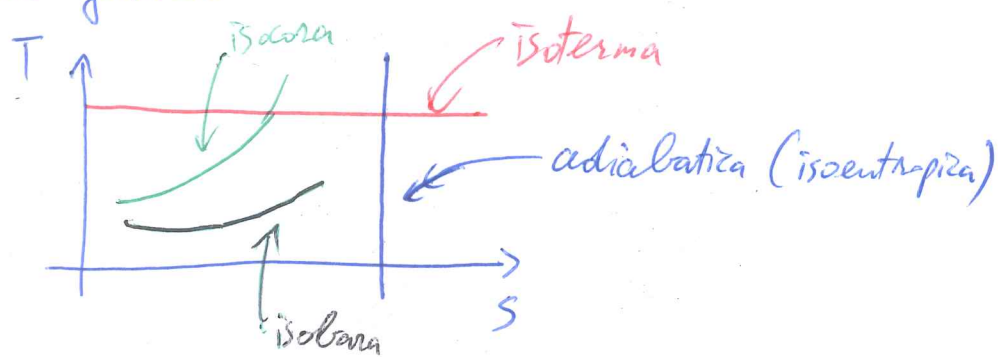 isocora
T
isoterma
adiabatica (isoentropica)
S
isobara